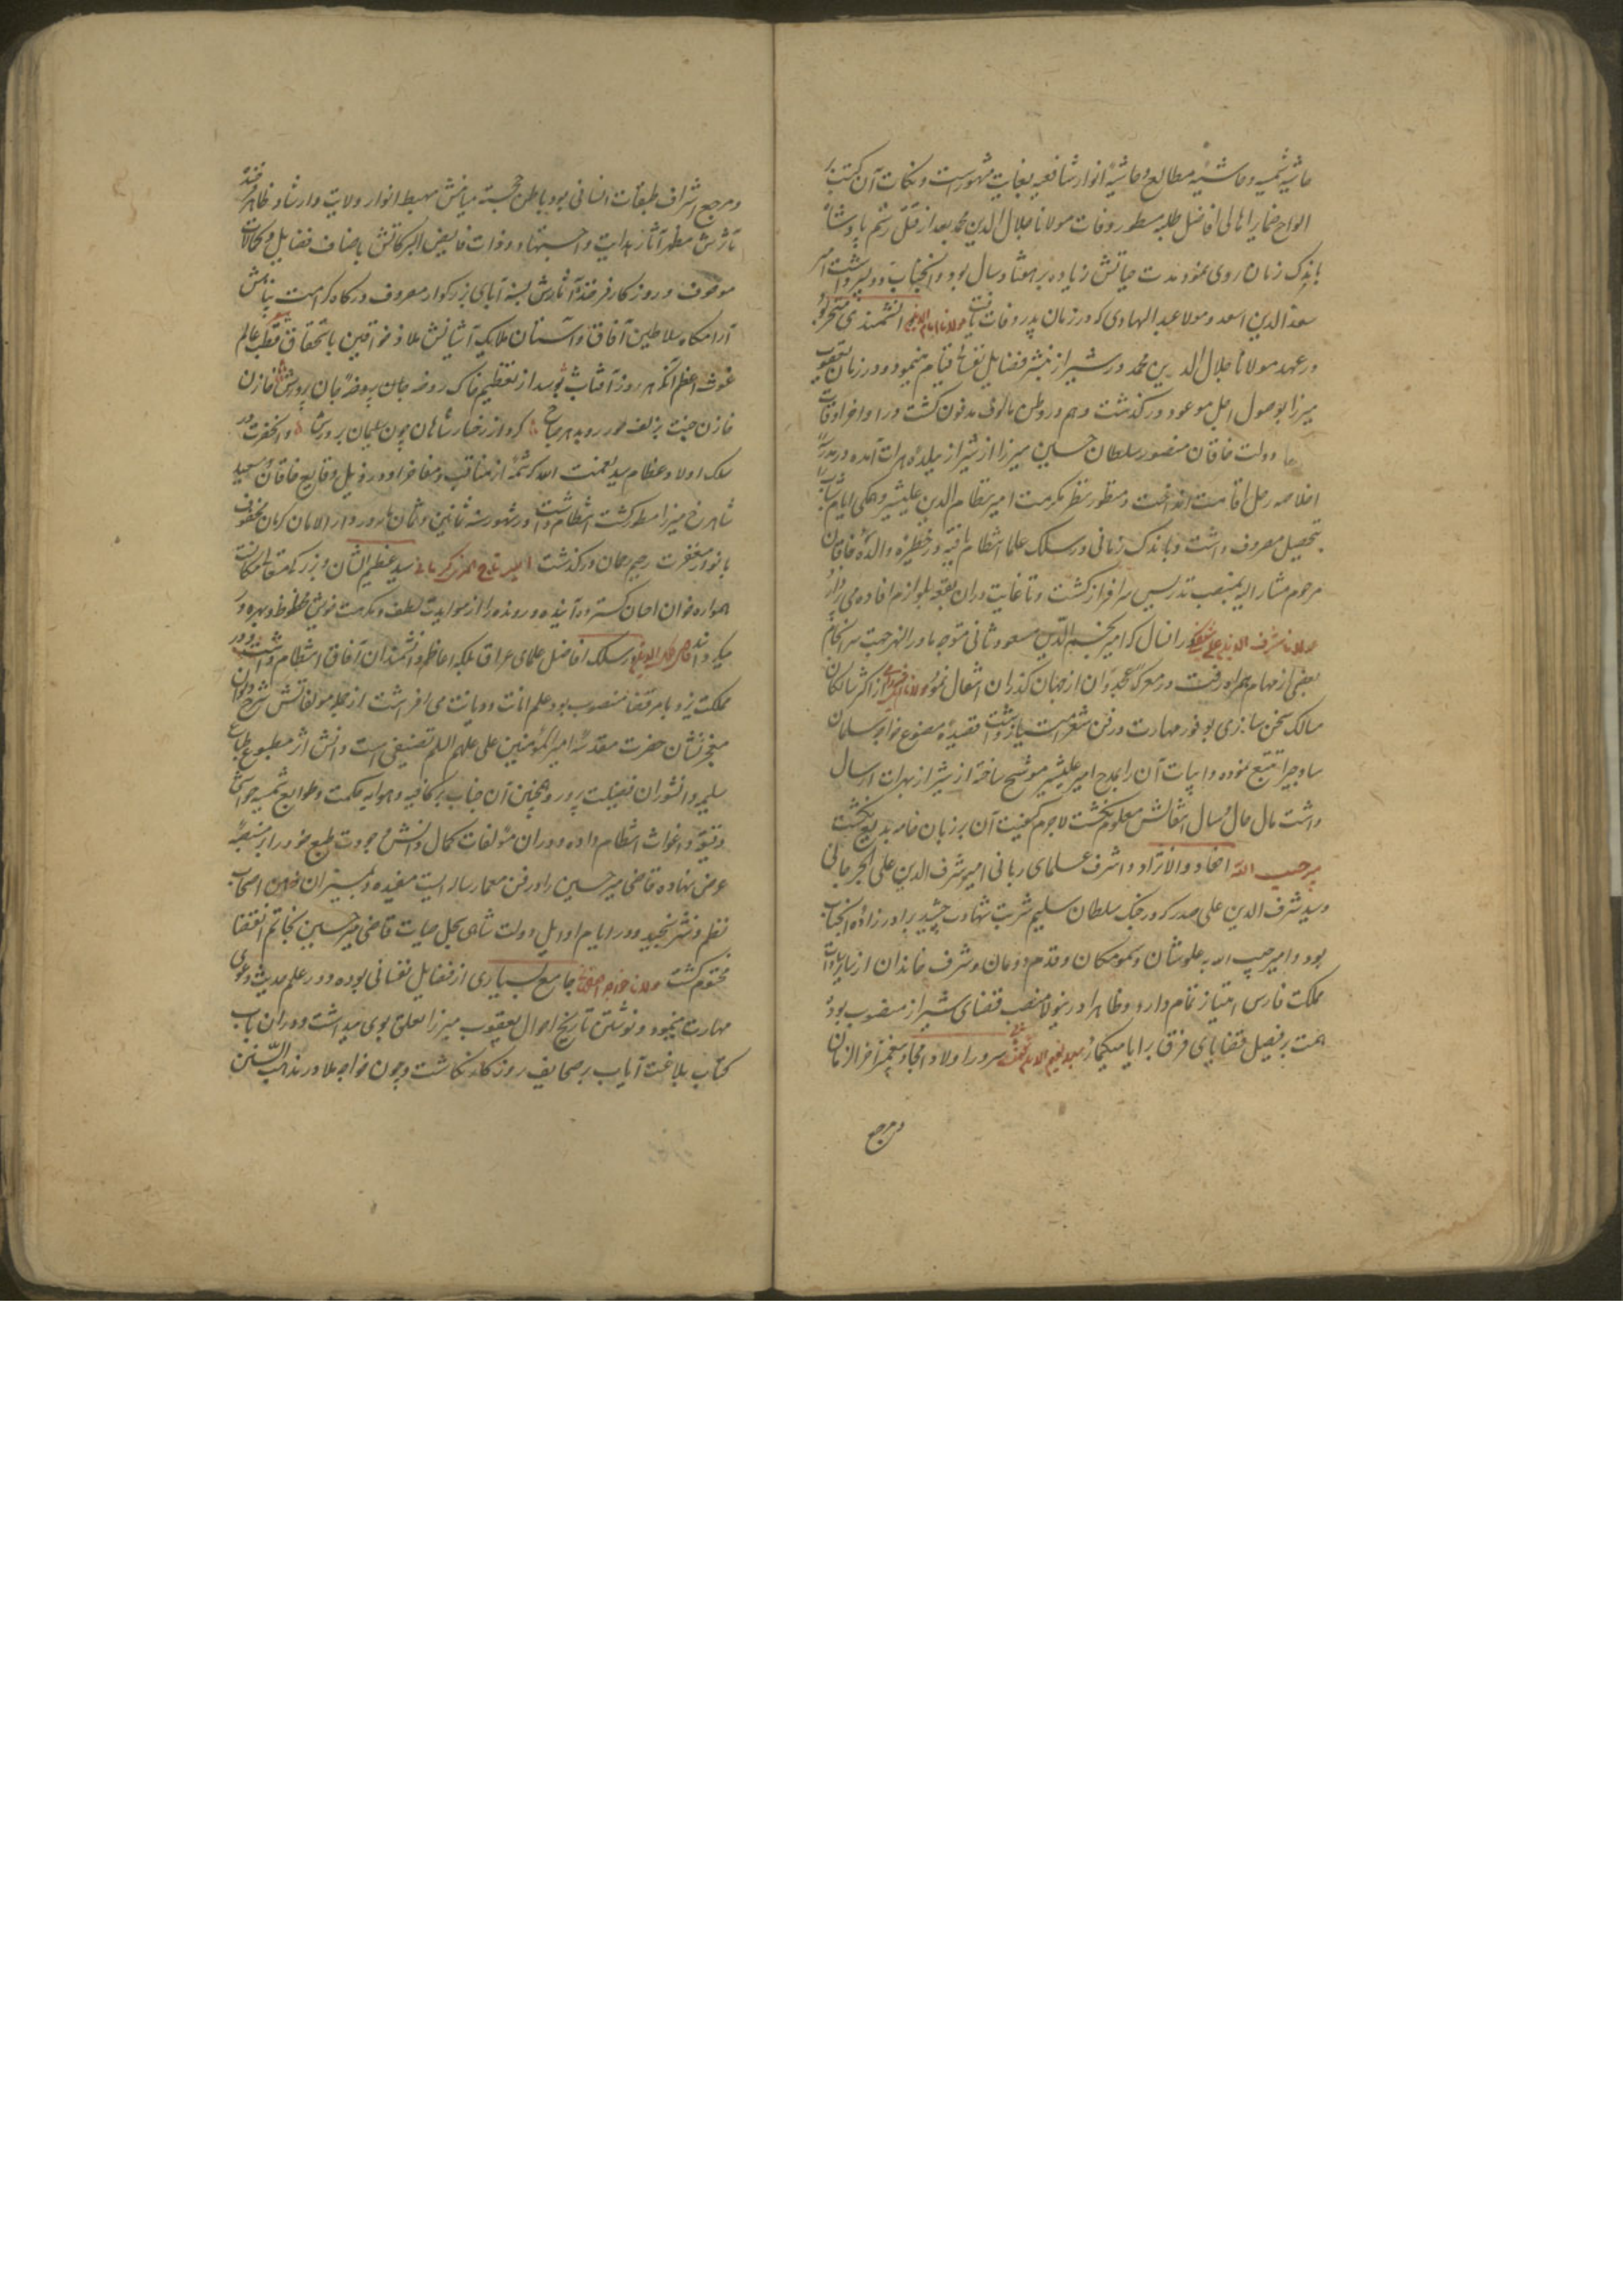 حاشیه شمسیه و حاشیه مطالع و حاشیه انوار شافعیه بغایت مشهور است و نکات آن کتب بر
الواح ضمایر اهالی افاضل طلبه مسطور وفات مولانا جلال الدین محمد بعد از قتل رستم پادشاه
باندک زمان روی نمود مدت حیاتش زیاده بر هفتاد سال بود و آنجناب دو پسر داشت امیر
سعد الدین اسعد و مولا عبد الهادی که در زمان پدر وفات یافت مولانا امام الدین دانشمندی متبحر بود
در عهد مولانا جلال الدین محمد در شیراز بنشر فضایل نفسانی قیام مینمود و در زمان یعقوب
میرزا بوصول اجل موعود درگذشت و هم در وطن مالوف مدفون گشت و در اواخر اوقات
دولت خاقان منصور سلطان حسین میرزا از شیراز ببلده هرات آمده در مدرسه
اخلاصیه رحل اقامت انداخت و منظور نظر مکرمت امیر نظام الدین علیشیر و همگی ایام شباب
بتحصیل مصروف داشت و باندک زمانی در سلک علما انتظام یافته در خطیره والده خاقان
مرحوم مشار الیه بمنصب تدریس سرافراز گشت و تا غایت دران بقعه بلوازم افاده می پردازد
مولانا شرف الدین علی در انسال که امیر نجم الدین مسعود ثانی متوجه ماوراء النهر جهت سرانجام
بعضی از مهام همراه او رفت و در معرکه غجدوان از جهان گذران انتقال نمود مولانا اهلی شیرازی از اکثر سالکان
مسالک سخن سازی بوفور مهارت در فن شعر امتیاز داشت قصیده مصنوع خواجه سلمان
ساوجی را تتبع نموده و ابیات آن را بمدح امیر علیشیر موشح ساخته از شیراز بهرات ارسال
داشت مال حال و سال انتقالش معلوم نگشت لاجرم کیفیت آن بر زبان خامه بدیع نگشت
میر حبیب الله احفاد و الانژاد و اشرف علمای ربانی امیر شرف الدین علی الجرجانی
و سید شرف الدین علی صدر که در جنگ سلطان سلیم شربت شهادت چشید برادر زاده آنجناب
بود و امیر حبیب الله بعلو شان و سمو مکان و قدم دودمان و شرف خاندان از سایر سادات
مملکت فارس امتیاز تمام دارد و ظاهرا در ینولا منصب قضای شیراز منصوب بود
همت بر فیصل قضایای فرق برایا میگمارد سید نعیم الدین نعمت الله سرور اولاد امجاد پیغمبر آخر الزمان
و مرجع
و مرجع اشراف طبقات انسانی بود باطن خجسته میامنش مهبط انوار ولایت و ارشاد و ظاهر خجسته
مآثرش مظهر آثار هدایت و اجتهاد و ذات فایض البرکاتش باصناف فضایل و کمالات
موصوف و روزگار فرخنده آثارش بسنه آبای بزرگوار معروف درگاه کرامت پناهش
آرامگاه سلاطین آفاق و آستان ملایک آشیانش ملاذ خواقین باستحقاق قطب عالم
غوث اعظم آنکه هر روز آفتاب بوسد از تعظیم خاک روضه جان پرورش خازن
خازن جنت بزلف حور روبد هر صباح گرد از رخسار شاهان چون غلمان بر درش و آنحضرت در
سلک اولاد عظام سید نعمت الله که شمه از مناقب و مفاخر او در ذیل وقایع خاقان سعید
شاهرخ میرزا مسطور گشت انتظام داشت و در شهور سنه ثمانین و ثمان مایه در دار الامان کرمان محفوف
بانوار مغفرت رحیم رحمان درگذشت امیر تاج الدین کرمانی سید عظیم الشان و بزرگ مقام مکان
همواره خوان احسان گسترده آینده و رونده را از مواید لطف و مکرمت خویش محظوظ و بهره ور
میگرداند قاضی میر حسین در سلک افاضل علمای عراق بلکه اعاظم دانشمندان آفاق انتظام داشت و در
مملکت یزد بامر قضا منصوب بود علم امانت و دیانت می افراشت از جمله مولفاتش شرح دیوان
معجز نشان حضرت مقدسه امیر المومنین علی علیه السلم تصنیفی است دانش اثر مطبوع طباع
سلیم دانشوران فضیلت پرور و همچنین آن جناب بر کافیه و هدایه حکمت و طوالع و شمسیه حواشی
دقیقه انتظام داده و دران مولفات کمال دانش و جودت طبع خود را بر منصه
عرض نهاده قاضی میر حسین را در فن معما رساله ایست مفیده و بمیزان ذهن اصحاب
نظم و نثر سنجیده و در ایام اوایل دولت شاهی سجل حیات قاضی میر حسین بخاتم انقضا
مختوم گشت مولانا جامع بسیاری از فضایل نفسانی بوده و در علم حدیث دعوی
مهارت مینمود و نوشتن تاریخ احوال یعقوب میرزا تعلق بوی میداشت و دران باب
کتاب بلاغت آیاب بر صحایف روزگار نگاشت و چون خواجه ملا در مذهب تسنن